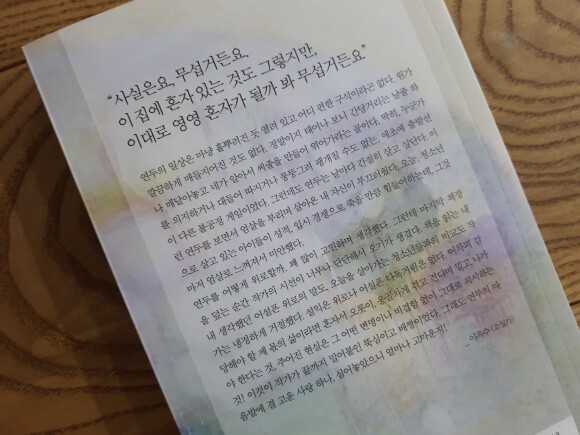 “사실은요, 무섭거든요.
이 집에 혼자 있는 것도 그렇지만,
이대로 영영 혼자가 될까 봐 무섭거든요”
연두의 일상은 마냥 흩뿌려진 듯 열려 있고 어디 편한 구석이라곤 없다. 뭔가
깔끔하게 매듭지어진 것도 없다. 정말이지 태어나 보니 간당거리는 날줄 하
나 매달아놓고 네가 알아서 씨줄을 만들어 엮어가라는 꼴이다. 딱히, 누군가
를 의지하거나 대들어 따지거나 응등그려 팽개칠 수도 없는, 애초에 출발선
이 다른 불공정 게임이었다. 그런데도 연두는 날마다 간절히 살고 싶단다. 이
런 연두를 보면서 엄살을 부리며 살아온 내 자신이 부끄러웠다. 오늘, 청소년
으로 살고 있는 아이들이 성적, 입시 경쟁으로 죽을 만큼 힘들어하는데, 그것
마저 엄살로 느껴져서 미안했다.
연두를 어떻게 위로할까. 꽤 많이 고민하며 생각했다. 그런데 마지막 책장
을 덮는 순간 작가의 시선이 너무나 단단해서 오기가 생겼다. 책을 읽는 내
내 생각했던 어설픈 위로의 말도, 오늘을 살아가는 청소년들과의 비교도 작
가는 냉정하게 거절했다. 설익은 위로나 어설픈 다독거림은 없다. 어차피 감
당해야 할 제 몫의 삶이라면 혼자서 오롯이, 온전하게 쥐고 견디며 밀고 나가
야 한다는 것, 주어진 현실은 그 어떤 변명이나 비겁함 없이 그대로 직시하는
것! 이것이 작가가 끝까지 밀어붙인 뚝심이고 배짱이었다. 그래도 연두의 마
음밭에 참 고운 사랑 하나, 심어놓았으니 얼마나 고마운지!